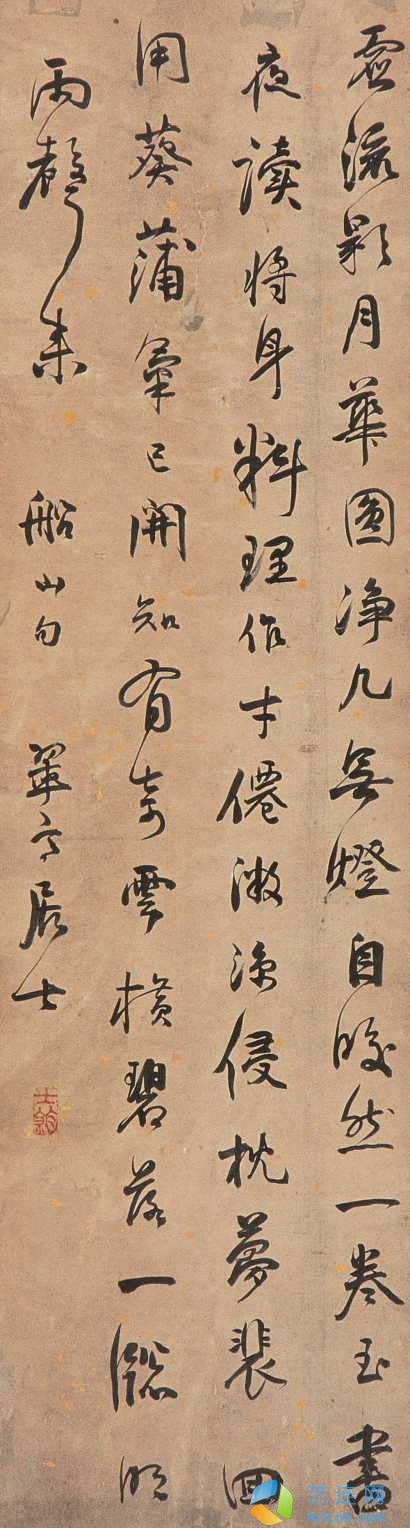 虚流影月華圓净几無燈自皎然一卷玉書
夜讀將身料理作才僊微涼侵枕夢裴回
用葵蒲氣已開知有奇雲橫碧落一牕
雨聲來 船山句 居士
艺连网